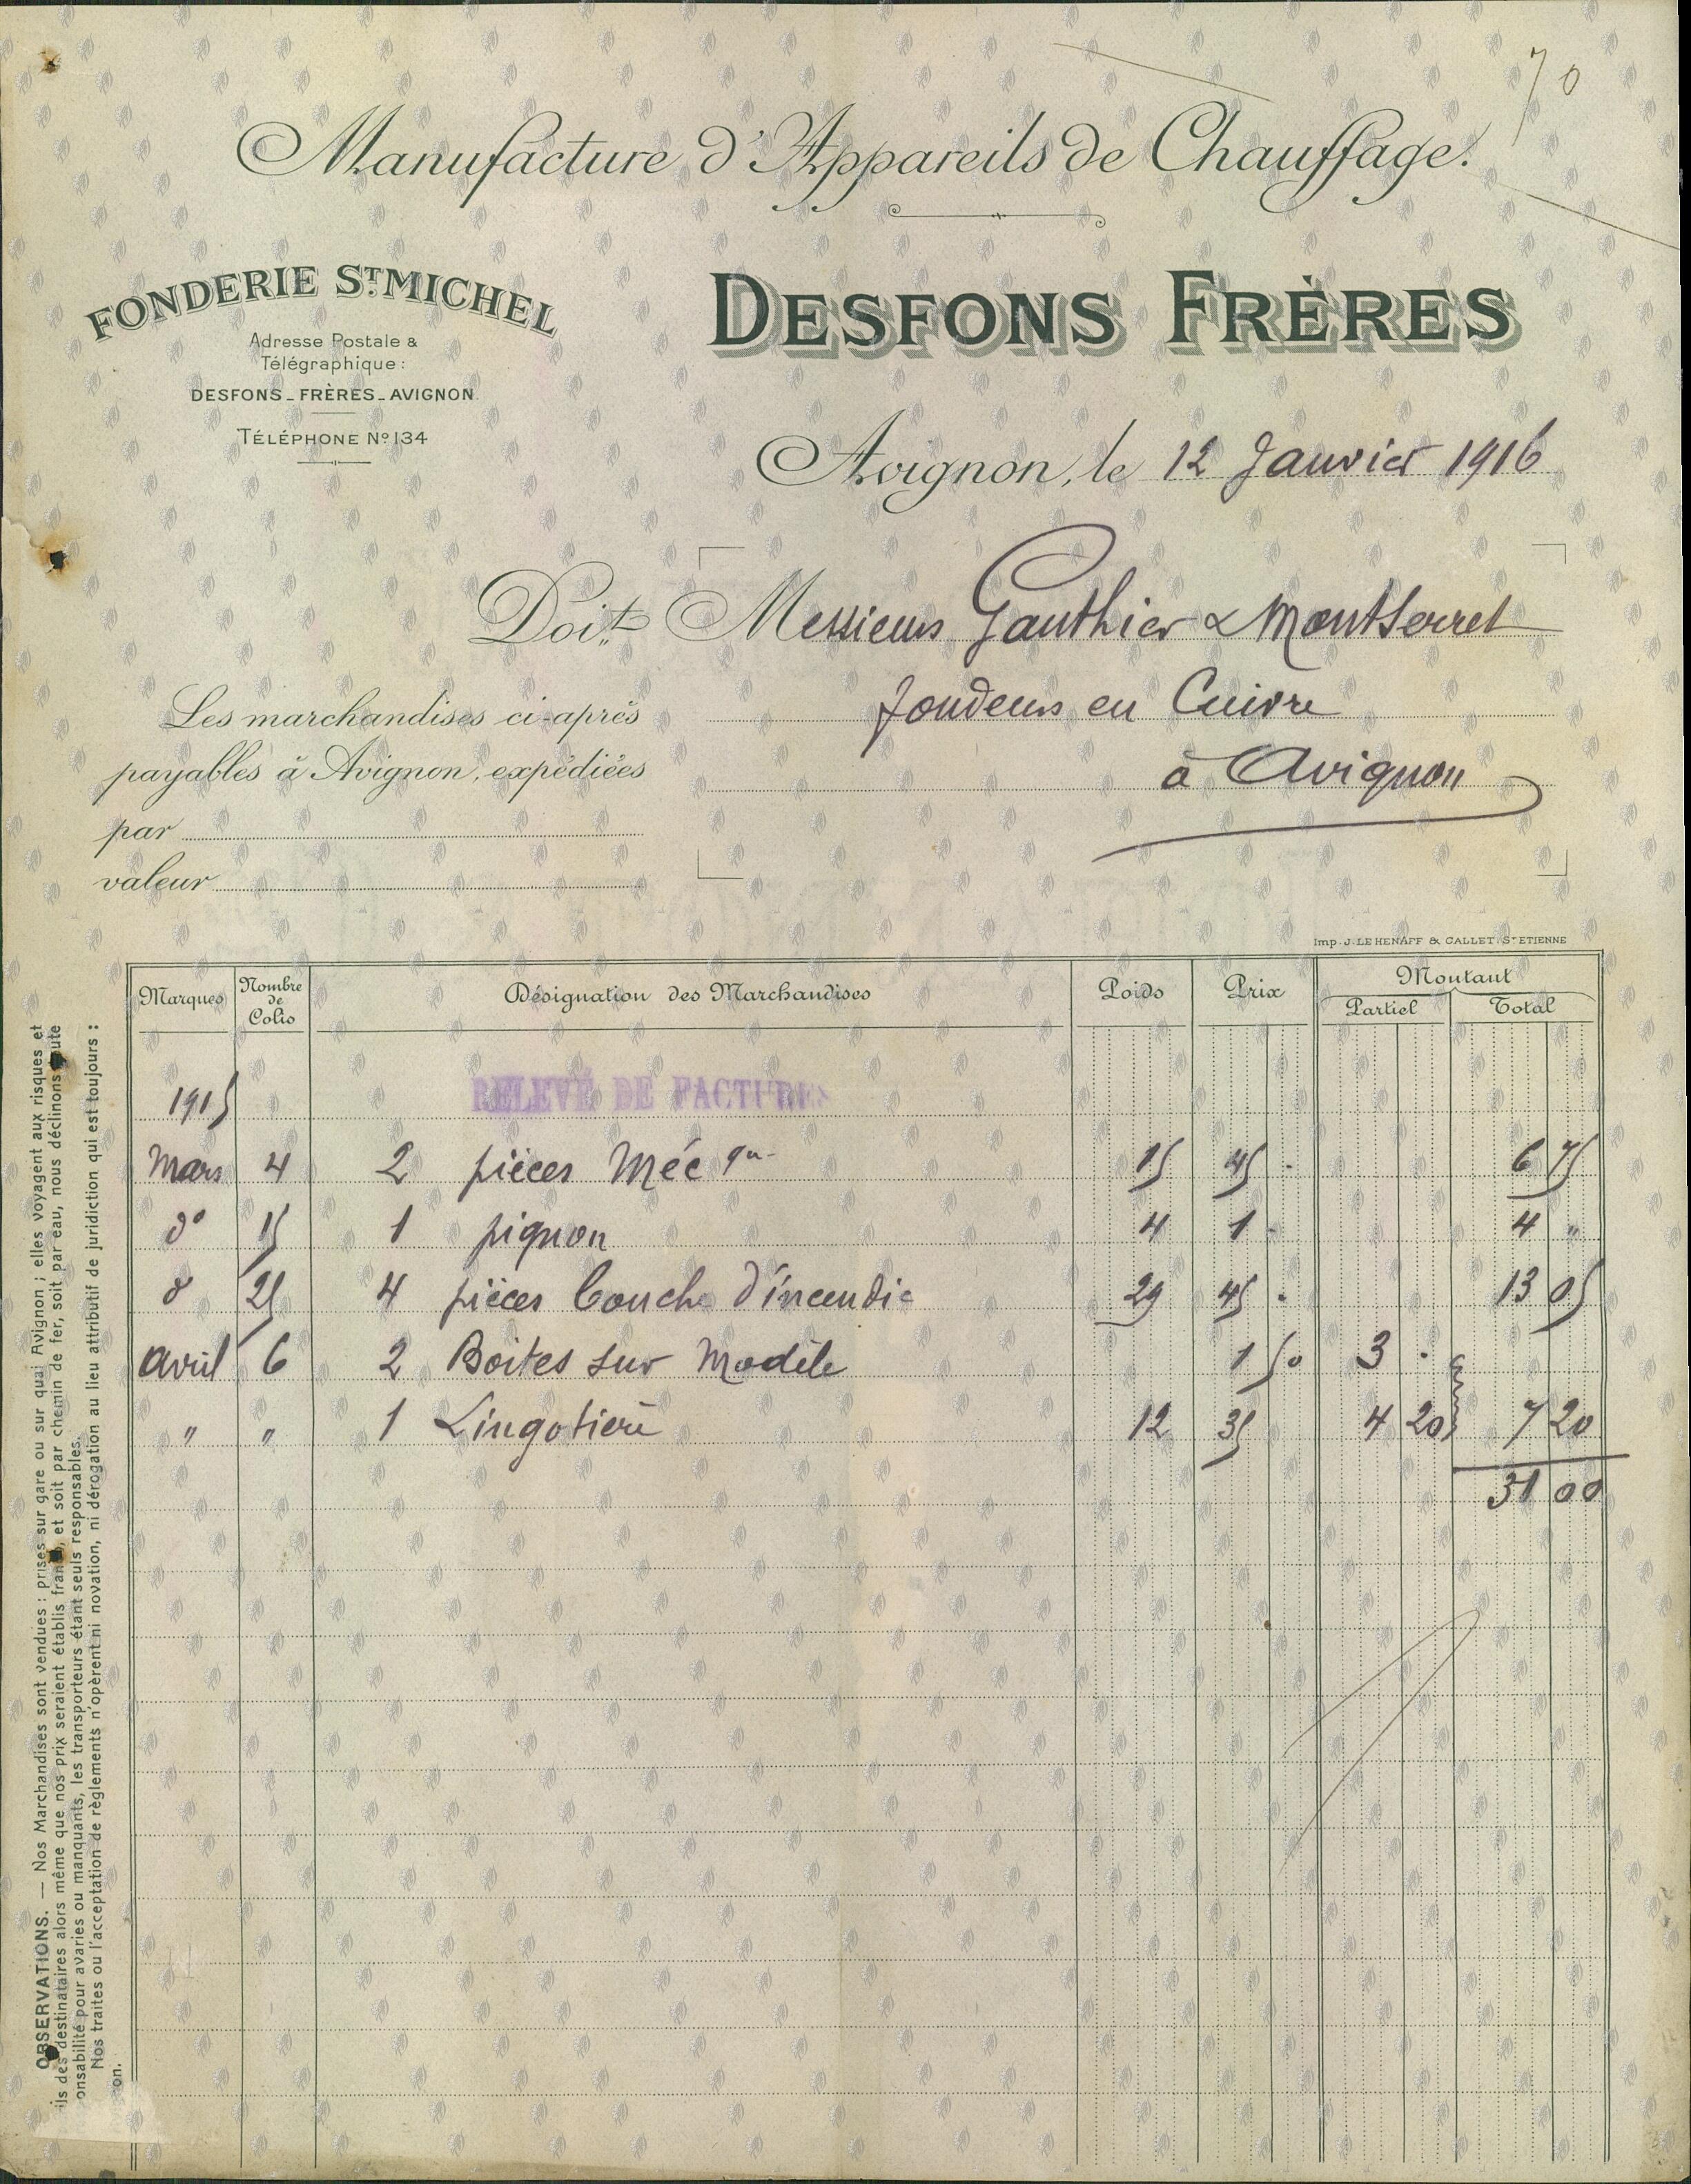 70
Manufacture d'Appareils de Chauffage.
FONDERIE ST MICHEL
Adresse Postale &
Télégraphique :
DESFONS_FRÈRES_AVIGNON
TÉLÉPHONE No 134
DESFONS FRÈRES
Avignon, le 12 Janvier 1916
Doit Messieurs Gauthier & Montserret
fondeurs en Cuivre
à Avignon
Les marchandises ci-après
payables à Avignon, expédiées
par
valeur
Imp. J. LE HENAFF & CALLET. St ETIENNE
Marques Nombre de Colis Désignation des Marchandises Poids Prix Montant Partiel Total
1915 RELEVÉ DE FACTURES
Mars 4 2 pièces Méc qu- 15 45 - 6 75
do 15 1 pignon 4 1 - 4 "
do 25 4 pièces bouche d'incendie 29 45 - 13 05
avril 6 2 Boites sur Modèle 1 50 3 .
" " 1 Lingotière 12 35 4 20 7 20
31 00
OBSERVATIONS. — Nos Marchandises sont vendues : prises sur gare ou sur quai Avignon ; elles voyagent aux risques et
ils des destinataires alors même que nos prix seraient établis franco, et soit par chemin de fer, soit par eau, nous déclinons toute
onsabilité pour avaries ou manquants, les transporteurs étant seuls responsables.
Nos traites ou l'acceptation de règlements n'opèrent ni novation, ni dérogation au lieu attributif de juridiction qui est toujours :
on.